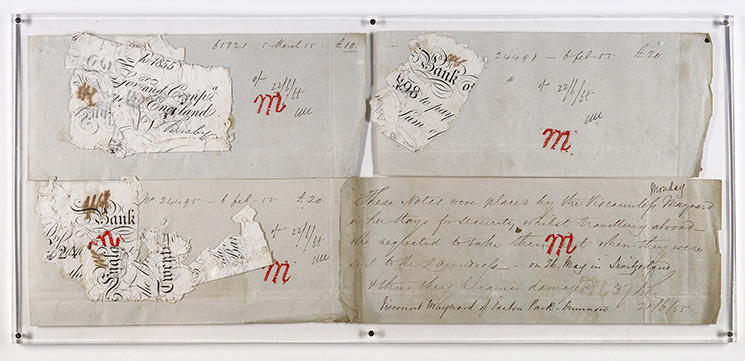 65821 - 5 March 55 £10.
of 22/6/55
M
h 1855
Gov and Compa
England
24498 - 6 feb - 55 £20
of 22/6/55
M
Bank of
498 to pay
Sum of
No 24495 - 6 feb - 55 £20
of 22/6/55
M
M
Bank
Engla
Twenty
the
Monday
These Notes were places by the Viscountess Maynard
in her Stays for security whilst travelling abroad
She neglected to take them out when they were
sent to the Laundress - on 26 May in Switzerland
& thus they became damaged
M
Viscount Maynard of Easton Park - Dunmow 22/6/55